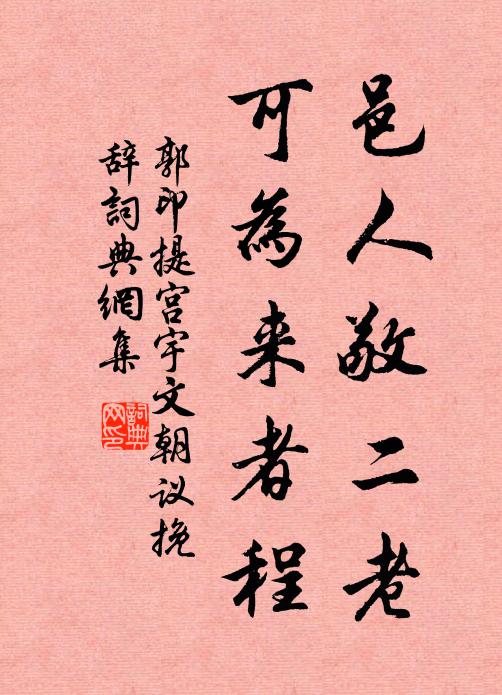 邑人敬二老
可為来者程
郭印提宫宇文朝议挽
辞詞典網集
詞典
网印